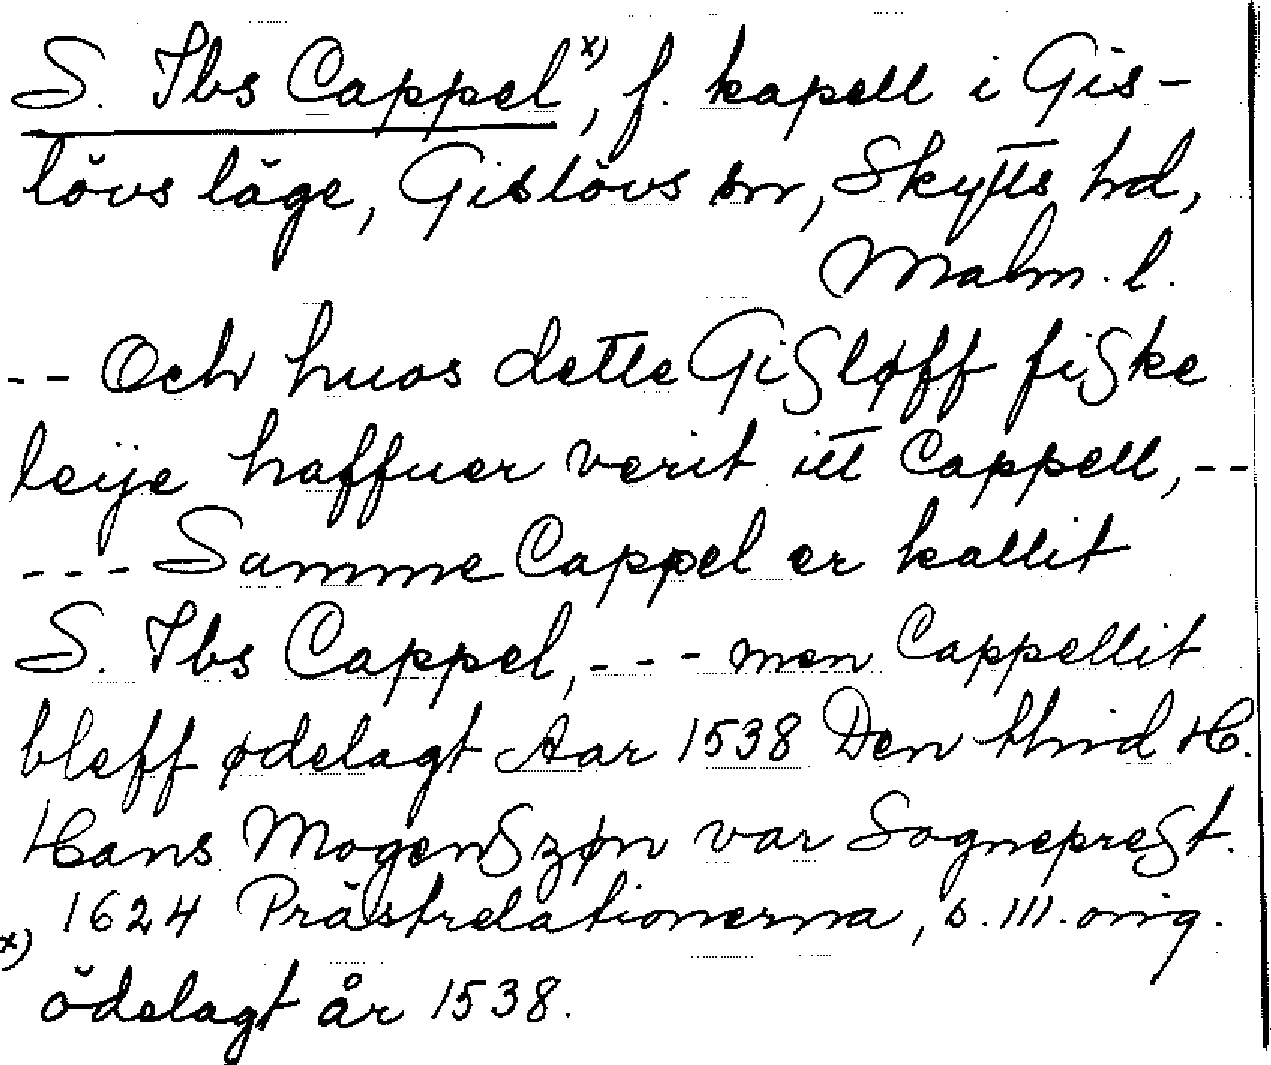 S. Ibs Cappel x), f. kapell i Gis-
lövs läge, Gislövs sn, Skytts hd,
Malm. l.
-- Och huos dette Gisløff fiske
leije haffuer verit itt Cappell, --
--- Samme Cappel er kallit
S. Ibs Cappel, --- men Cappellit
bleff ødelagt Aar 1538 Den thid H.
Hans Mogenszøn var Sogneprest.
1624 Prästrelationerna, s. 111. orig.
x) ödelagt år 1538.